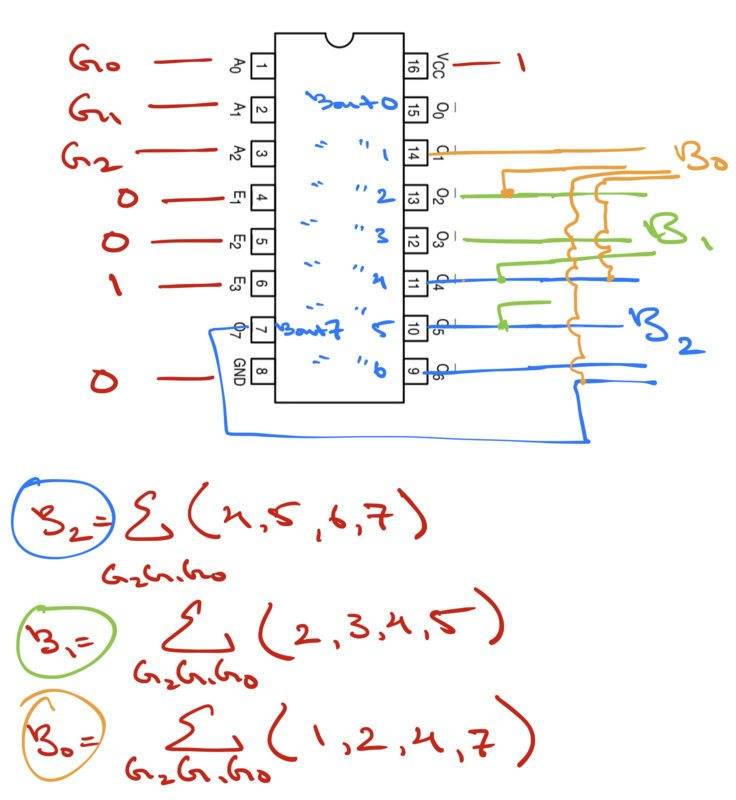 G0 A0 1 16 VCC 1
G1 A1 2 Bout 0 15 O0
G2 A2 3 " " 1 14 O1 B0
0 E1 4 " " 2 13 O2
0 E2 5 " " 3 12 O3 B1
1 E3 6 " " 4 11 O4
O7 7 Bout 7 " " 5 10 O5 B2
0 GND 8 " " 6 9 O6
B2 = Σ (4,5,6,7)
G2G1G0
B1 = Σ (2,3,4,5)
G2G1G0
B0 = Σ (1,2,4,7)
G2G1G0